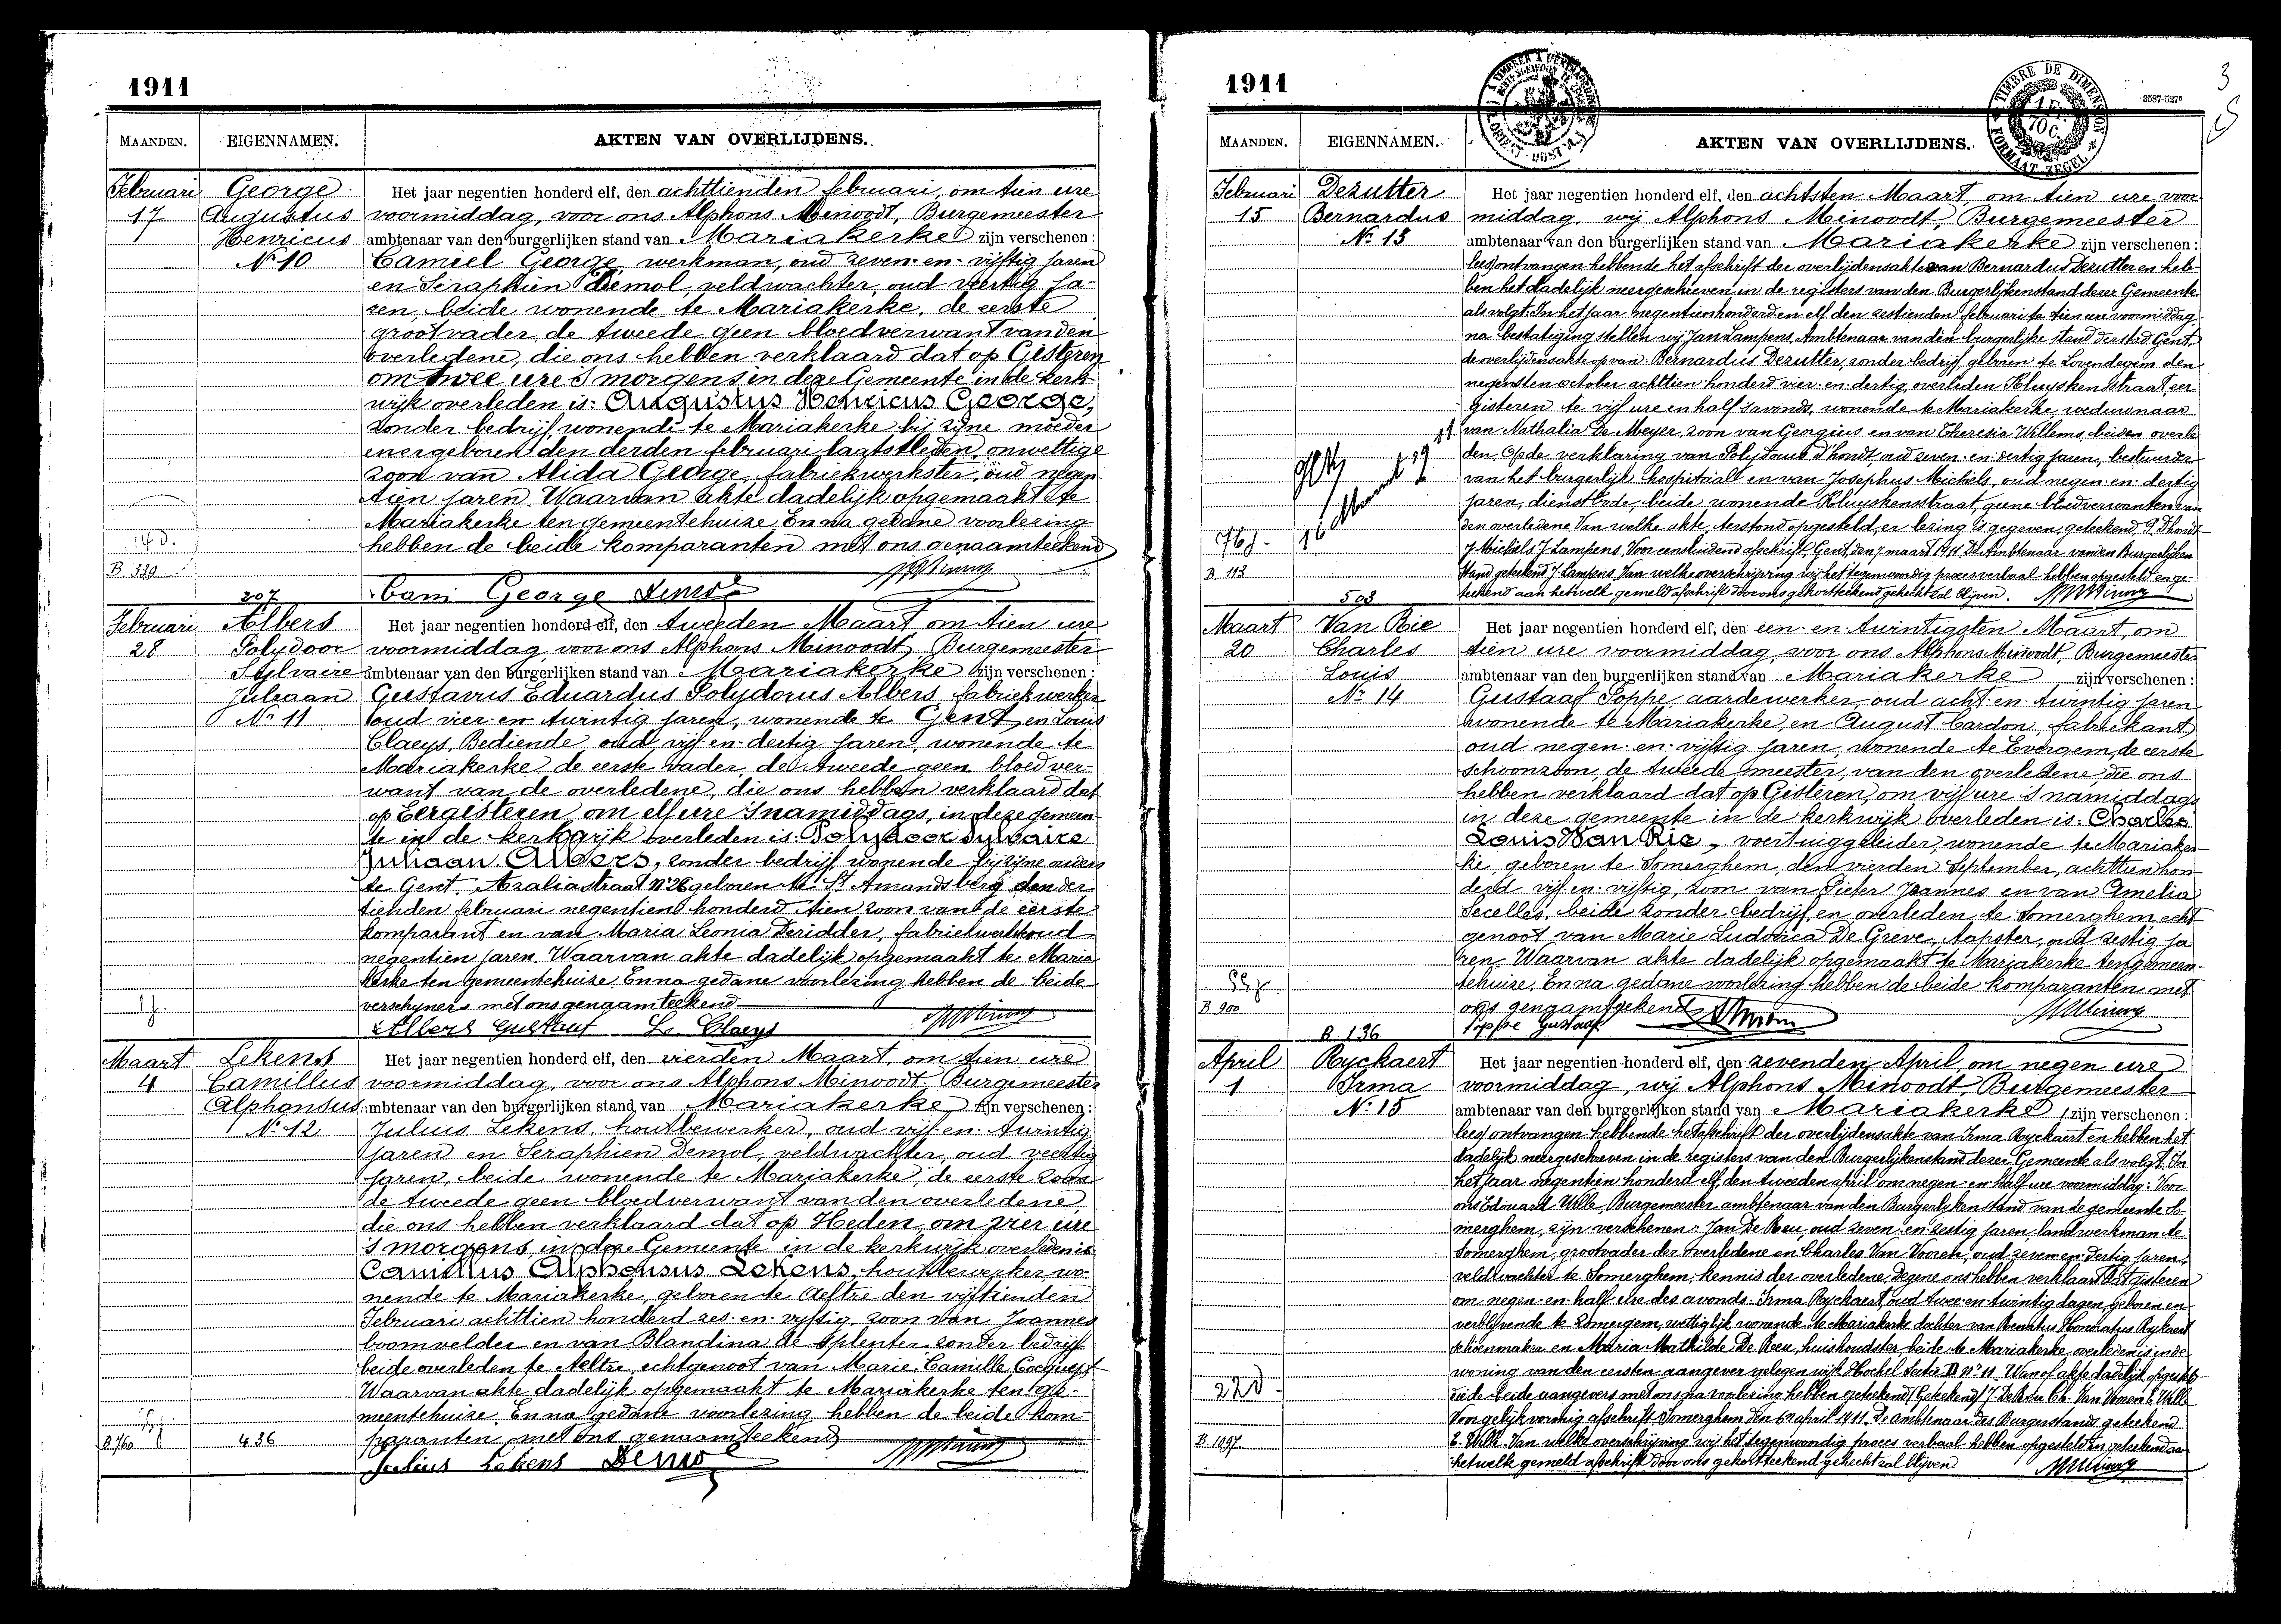 1911
MAANDEN. EIGENNAMEN. AKTEN VAN OVERLIJDENS.
Februari George Het jaar negentien honderd elf, den achttienden februari, om tien ure
17 Augustus voormiddag, voor ons Alphons Minoodt, Burgemeester
Henricus ambtenaar van den burgerlijken stand van Mariakerke zijn verschenen:
No 10 Camiel George, werkman, oud zeven-en-vijftig jaren
en Seraphien Demol, veldwachter, oud veertig ja-
ren, beide wonende te Mariakerke, de eerste
grootvader, de tweede geen bloedverwant van den
overledene, die ons hebben verklaard dat op Gisteren
om twee ure 's morgens in deze Gemeente in de kerk-
wijk overleden is: Augustus Henricus George,
zonder bedrijf, wonende te Mariakerke bij zijne moeder
en er geboren den derden februari laatstleden, onwettige
zoon van Alida George, fabriekwerkster, oud negen-
tien jaren. Waarvan akte dadelijk opgemaakt te
Mariakerke ten gemeentehuize. En na gedane voorlezing
hebben de beide komparanten met ons genaamteekend
B. 339
Cam George Demol
207
Februari Albers Het jaar negentien honderd elf, den tweeden Maart om tien ure
28 Polydoor voormiddag, voor ons Alphons Minoodt, Burgemeester
Sylvaire ambtenaar van den burgerlijken stand van Mariakerke zijn verschenen:
Juliaan Gustavus Eduardus Polydorus Albers, fabriekwerker
No 11 oud vier en twintig jaren, wonende te Gent en Louis
Claeys, Bediende oud vijf en dertig jaren, wonende te
Mariakerke, de eerste vader, de tweede geen bloedver-
want van de overledene, die ons hebben verklaard dat
op Eergisteren om elf ure 's namiddags, in deze gemeen-
te in de kerkwijk overleden is: Polydoor Sylvaire
Juliaan Albers, zonder bedrijf wonende bij zijne ouders
te Gent, Azaliastraat No 26 geboren te St Amandsberg den der-
tienden februari negentien honderd tien zoon van de eerste
komparant en van Maria Leonia Deridder, fabriekwerkster oud
negentien jaren. Waarvan akte dadelijk opgemaakt te Maria-
kerke ten gemeentehuize. En na gedane voorlezing hebben de beide
verschijners met ons genaamteekend
Albers Gustaaf L. Claeys
Maart Lekens Het jaar negentien honderd elf, den vierden Maart, om tien ure
4 Camillus voormiddag, voor ons Alphons Minoodt, Burgemeester
Alphonsus ambtenaar van den burgerlijken stand van Mariakerke zijn verschenen:
No 12 Julius Lekens, houtbewerker, oud vijf en twintig
jaren en Seraphien Demol, veldwachter, oud veertig
jaren, beide wonende te Mariakerke, de eerste zoon
de tweede geen bloedverwant van den overledene,
die ons hebben verklaard dat op Heden, om vier ure
's morgens, in deze Gemeente in de kerkwijk overleden is
Camillus Alphonsus Lekens, houtbewerker wo-
nende te Mariakerke, geboren te Aeltre den vijftienden
Februari achttien honderd zes en vijftig, zoon van Joannes
boomvelder en van Blandina de Splenter zonder bedrijf
beide overleden te Aeltre, echtgenoot van Marie Camille Cocquyt
Waarvan akte dadelijk opgemaakt te Mariakerke ten ge-
meentehuize. En na gedane voorlezing hebben de beide kom-
B 760 436 paranten met ons genaamteekend
Julius Lekens Demol
1911
3587-5275
3
TIMBRE DE DIMENSION
FORMAAT ZEGEL
MAANDEN. EIGENNAMEN. AKTEN VAN OVERLIJDENS.
Februari Dezutter Het jaar negentien honderd elf, den achtsten Maart, om tien ure voor
15 Bernardus middag, wij Alphons Minoodt, Burgemeester
No 13 ambtenaar van den burgerlijken stand van Mariakerke zijn verschenen:
lees ontvangen hebbende het afschrift der overlijdensakte van Bernardus Dezutter en heb-
ben het dadelijk neergeschreven in de registers van den Burgerlijkenstand dezer Gemeente
als volgt: In het jaar negentienhonderd en elf den zestienden februari te tien ure voormiddag
na bestatiging stellen wij Jan Lampens, Ambtenaar van den burgerlijke stand der stad Gent
de overlijdensakte op van: Bernardus Dezutter, zonder bedrijf, geboren te Lovendegem den
negensten october achttien honderd vier en dertig, overleden Kluyskensstraat, eer
gisteren te vijf ure en half 's avonds, wonende te Mariakerke, weduwnaar
van Nathalia De Meyer, zoon van Georgius en van Theresia Willems, beiden overle
den. Op de verklaring van Polydoud D'hondt, oud zeven-en-dertig jaren, bestuurder
van het burgerlijk hospitaal en van Josephus Michiels, oud negen-en-dertig
jaren, dienstbode, beide wonende Kluyskensstraat, geene bloedverwanten van
den overledene. Van welke akte, terstond opgesteld, er lezing is gegeven, geteekend, P. Dhondt
J. Michiels J. Lampens. Voor eensluidend afschrift, Gent, den 7 maart 1911. De Ambtenaar van den Burgerlijken
B 113 Stand geteekend J. Lampens. Van welke overschrijving wij het tegenwoordig procesverbaal hebben opgesteld en ge-
503 teekend aan hetwelk gemeld afschrift door ons gekortteekend gehecht zal blijven.
Maart Van Rie Het jaar negentien honderd elf, den een-en-twintigsten Maart, om
20 Charles tien ure voormiddag, voor ons Alphons Minoodt, Burgemeester
Louis ambtenaar van den burgerlijken stand van Mariakerke zijn verschenen:
No 14 Gustaaf Poppe, aardewerker, oud acht-en-twintig jaren
wonende te Mariakerke, en August Cardon, fabriekant
oud negen-en-vijftig jaren, wonende te Evergem, de eerste
schoonzoon, de tweede meester, van den overledene die ons
hebben verklaard dat op Gisteren, om vijf ure 's namiddags
in deze gemeente in de kerkwijk overleden is: Charles
Louis Van Rie, voertuiggeleider, wonende te Mariaker-
ke, geboren te Somerghem, den vierden September, achttien hon-
derd vijf en vijftig, zoon van Pieter Joannes en van Amelia
Secelles, beide zonder bedrijf en overleden te Somerghem echt-
genoot van Marie Ludovica De Greve, tapster, oud zestig ja
ren. Waarvan akte dadelijk opgemaakt te Mariakerke ten gemeen-
tehuize. En na gedane voorlezing hebben de beide komparanten met
B 900 ons genaamteekend
B 136 Poppe Gustaaf
April Ryckaert Het jaar negentien honderd elf, den zevenden April, om negen ure
1 Irma voormiddag, wij Alphons Minoodt, Burgemeester
No 15 ambtenaar van den burgerlijken stand van Mariakerke zijn verschenen:
lees ontvangen hebbende het afschrift der overlijdensakte van Irma Ryckaert en hebben het
dadelijk neergeschreven in de registers van den Burgerlijkenstand dezer Gemeente als volgt: In
het jaar negentien honderd elf, den tweeden april om negen-en-half ure voormiddag: Voor
ons Edouard Wille Burgemeester ambtenaar van den Burgerlyken stand van de gemeente So-
merghem, zijn verschenen: Jan De Reu, oud zeven-en-zestig jaren, landwerkman te
Somerghem, grootvader der overledene en Charles Van Vooren, oud zeven-en-dertig jaren,
veldwachter te Somerghem, kennis der overledene. Degene ons hebben verklaard dat gisteren
om negen-en-half ure des avonds: Irma Ryckaert, oud twee-en-twintig dagen, geboren en
verblijvende te Somergem, wettiglijk wonende te Mariakerke dochter van Renatus Honoratus Rykaert
schoenmaker en Maria Mathilde De Reeu, huishoudster, beide te Mariakerke, overleden is in de
woning van den eersten aangever gelegen wijk Hoekel Sectie D No 11. Waarvan akte dadelijk opgesteld
die de beide aangevers met ons na voorlezing hebben geteekend (Geteekend) J. De Reu Ch. Van Vooren E. Wille
Voor gelijkvormig afschrift Somerghem den 6n april 1911. De ambtenaar des Burgerstands geteekend
B. 1097 E. Wille. Van welke overschrijving wij het tegenwoordig proces verbaal hebben opgesteld en geteekend aan
hetwelk gemeld afschrift door ons gekortteekend gehecht zal blijven